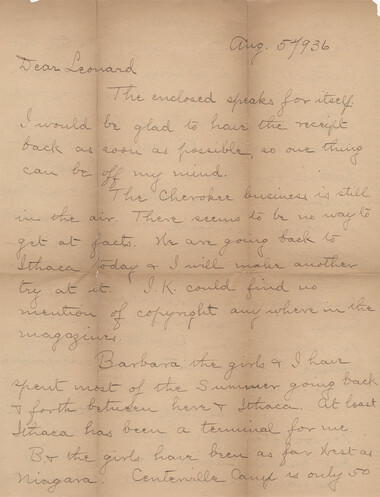 Aug. 5 1936
Dear Leonard
The enclosed speaks for itself.
I would be glad to have the receipt
back as soon as possible, so one thing
can be off my mind.
The Cherokee business is still
in the air. There seems to be no way to
get at facts. We are going back to
Ithaca today & I will make another
try at it. I.K. could find no
mention of copyright any where in the
magazines.
Barbara the girls & I have
spent most of the Summer going back
& forth between here & Ithaca. At least
Ithaca has been a terminal for me.
B & the girls have been as far West as
Niagara. Centerville Camp is only 50